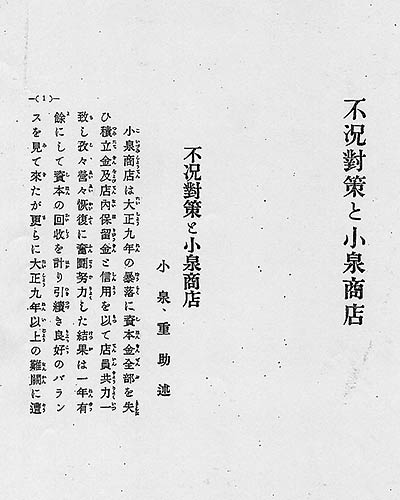 不况對策と小泉商店
不况對策と小泉商店
小泉、重助述
小泉商店は大正九年の暴落に資本金全部を失
ひ積立金及店內保留金と信用を以て店員共力一
致し孜々營々恢復に奮鬪努力した結果は一年有
餘にして資本の回收を計り引續き良好のバラン
スを見て來たが更らに大正九年以上の難關に遭
—(1)—